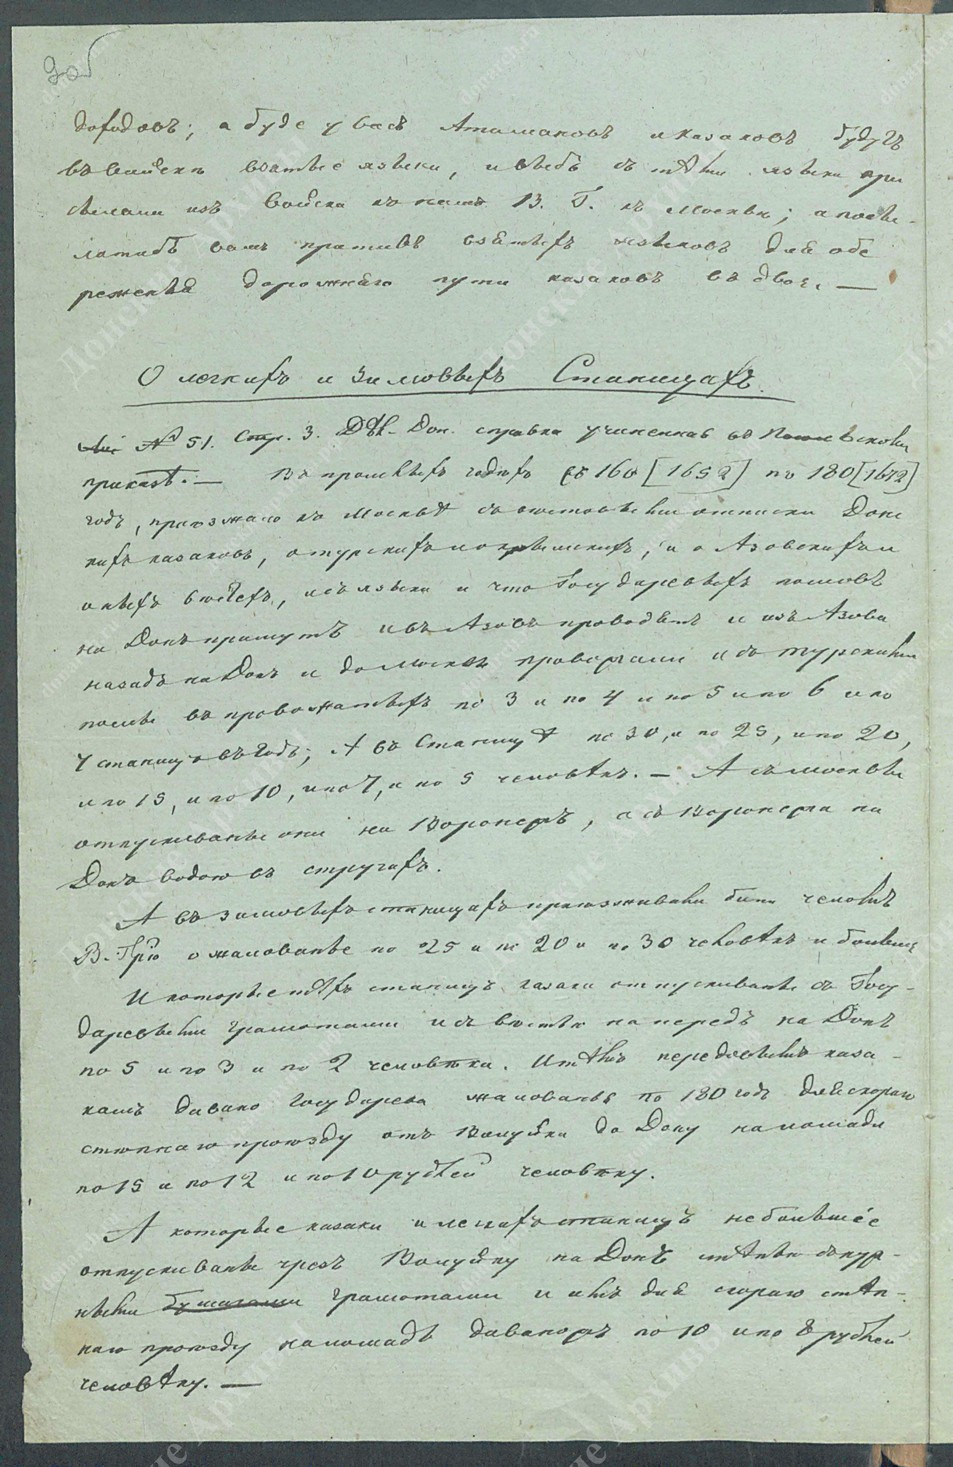 9об
доходовъ; а буде у васъ Атамановъ и казаковъ будутъ
въ войскѣ взятые языки, и выбъ съ тѣми языки при
сылали изъ Войска къ намъ В. Г. къ Москвѣ; а посы-
латибъ вамъ противъ взятыхъ языковъ для обе
реженья дорожнаго пути казаковъ въ двое. —
О легкихъ и зимовыхъ Станицахъ.
№ 51. Стр. 3. Дѣл. Дон. справка учиненная въ Посольскомъ
приказѣ. — Въ прошлыхъ годѣхъ съ 160 [1652] по 180 [1672]
годъ, приѣзжало къ Москвѣ съ войсковыми отписки Донс
кихъ казаковъ, о турскихъ и о крымскихъ, и о Азовскихъ и
о иныхъ вѣстехъ, и съ языки и что Государевыхъ пословъ
на Донъ примутъ и въ Азовъ проводятъ и изъ Азова
назадъ на Донъ и до Москвы провожали и съ турскими
послы въ провожатыхъ по 3 и по 4 и по 5 и по 6 и по
7 станицъ въ годъ; А въ Станицѣ по 30, и по 25, и по 20,
и по 15, и по 10, и по 7, и по 5 человѣкъ. — А съ Москвы
отпускиваны они на Воронежъ, а съ Воронежа на
Донъ водою въ стругахъ.
А въ зимовыхъ станицахъ приѣзживали бити челомъ
В. Грю о жалованье по 25 и по 20 и по 30 человѣкъ и больши
И которые тѣхъ станицъ казаки отпускиваны съ Госу-
даревыми грамотами и съ вѣстью на передъ на Донъ
по 5 и по 3 и по 2 человѣка. И тѣмъ передовымъ каза-
камъ давано Государева жалованья по 180 годъ для скораго
степнаго проѣзду отъ Валуйки до Дону на лошади
по 15 и по 12 и по 10 рублей человѣку.
А которые казаки и легкихъ станицъ небольшіе
отпускиваны чрезъ Валуйку на Донъ
грамотами и имъ для скораго степ-
наго проѣзду на лошадь давано жъ по 10 и по 8 рублей
человѣку. —